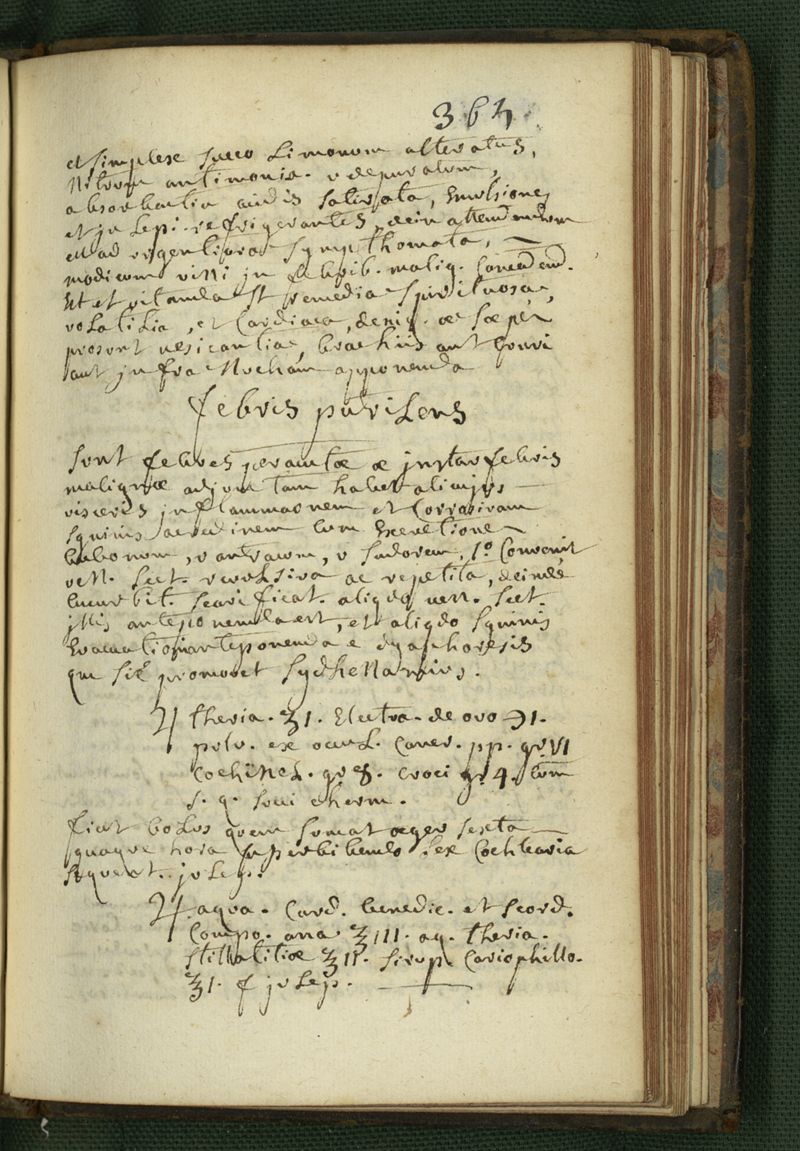 365
et simplex succo Limonum alteratus,
Nitrum antimonia. v depuratum,
absorbentia acidis satirata, Emulsiones
et juLepi refrigerantes, dein attendendum
est ad urgentiora Sympthomata,
modicum vini jn febrib. malig. Concedend.
Et et vitanda st remedia Spirituosa,
voLatiLia, et Cardiaca, deniq. ac sæpe
prosunt vesicantia, brachiis aut
aut jnfra Nucham apponenda
febris pestilens
sunt febres peracutæ æ jnstar febris
malignæ adjunctam habet alicujus
visceris jnflammaonem et Corrosivam
Sguinis acredinem cum Excretione
bubonum, v antracum, v sudorem, 1º Convenit
ven. Sect. revuLsiva ac repetita, deinde
cucurbit. Scarificat. aliqdo ven. Sect.
jllis anteponenda est, et aliqdo Sguinis
Evacuationi anteponenda e dyaphoresis
que sic promovet SydheNamius.
♃ theria. ʒ1. Electua. de ovo ℈1.
pulv. ex ocuL. Cancr. pp. gr. VI
CochiNeL. gr 8. croci gr. 4. Cum
s. q. succi cherm.
fiat boLus quem sumat æger sexta
quaque hora superbibendo sex Cochlearia
sequent. juLep.
♃ aqua. Card. benedic. et scord.
Compo. ana ℥III. aq. theria.
stillatitiæ ℥II. Sirup. Cariophillo.
℥1. f juLep.